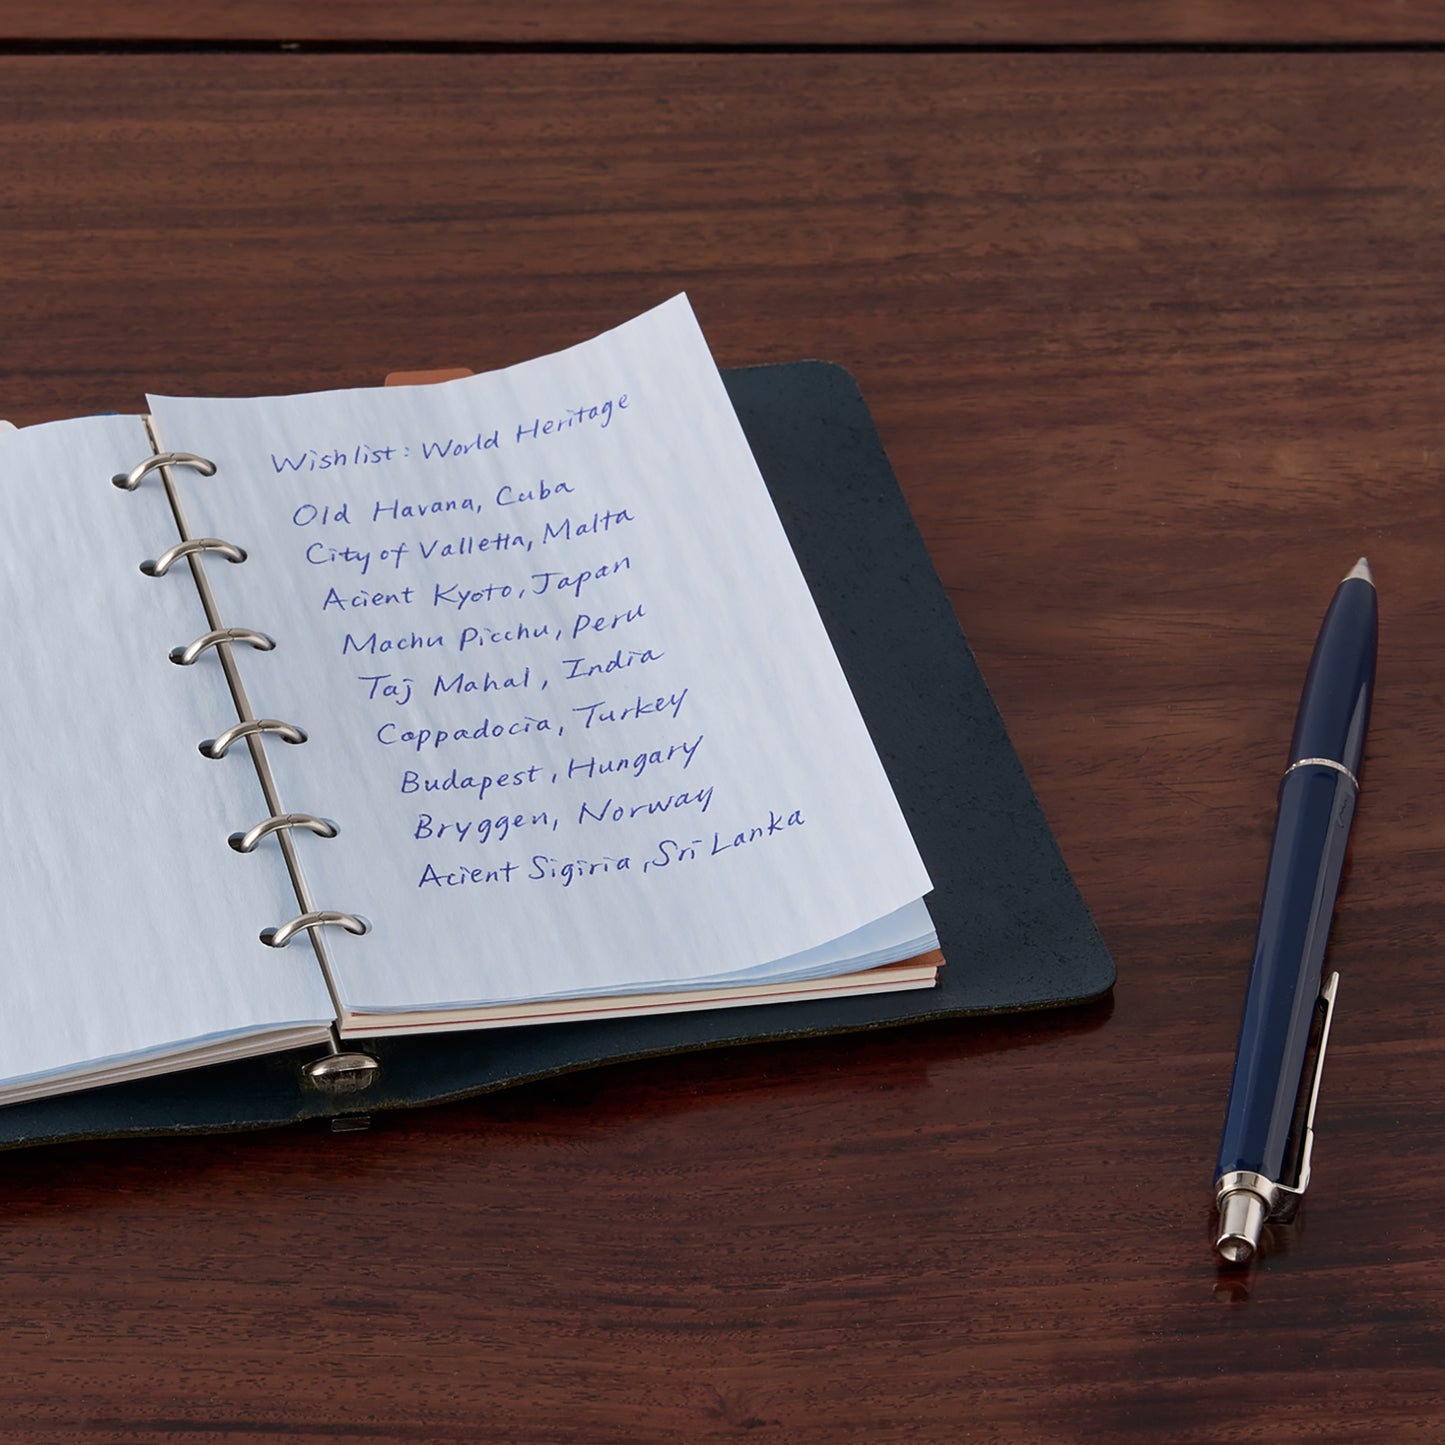 Wishlist: World Heritage
Old Havana, Cuba
City of Valletta, Malta
Acient Kyoto, Japan
Machu Picchu, Peru
Taj Mahal, India
Cappadocia, Turkey
Budapest, Hungary
Bryggen, Norway
Acient Sigiria, Sri Lanka